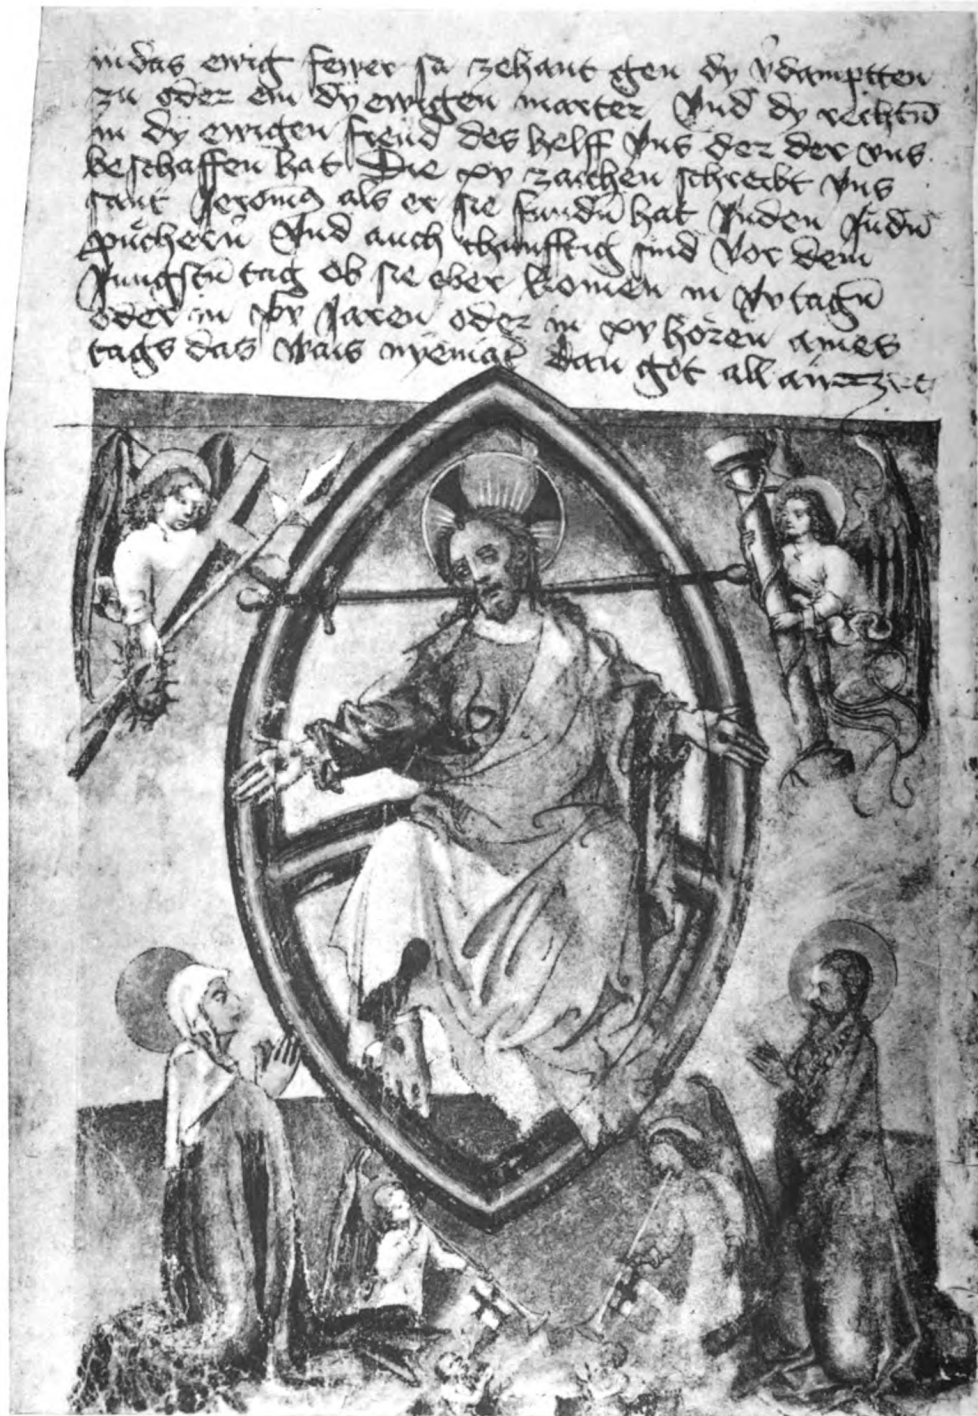 in das ewig fewer sa zehant gen dy v̄damptten
zu oder ein dÿ ewigen marter Vnd dy rechtn̄
in dÿ ewigen frewd des helff Vns der der vns
beschaffen hat Die xv zaichen schreibt Vns
sant Jeronimꝰ als er sie fundn̄ hat In den Judn̄
puͤchern̄ Vnd auch chunfftig sind Vor dem
Jungstn̄ tag Ob sie aber komen in xv tagn̄
oder in xv Jaren oder in xv horen aines
tags das wais nyemāt dan got all ain